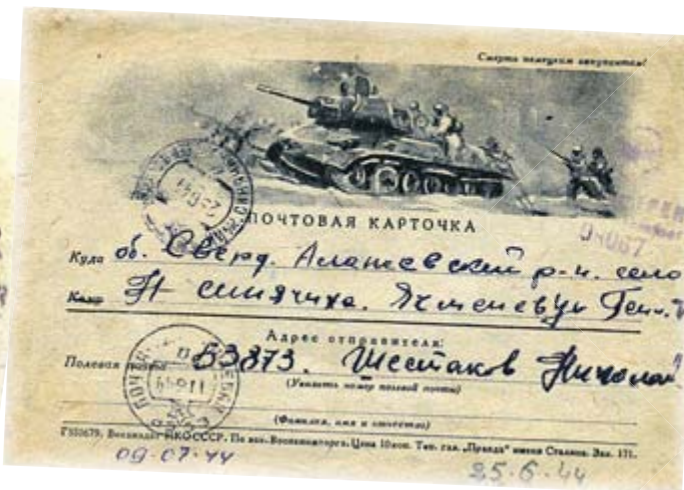 Смерть немецким оккупантам!
ПОЧТОВАЯ КАРТОЧКА
Куда об. Сверд. Алапаевский р-н. село
Кому Н Синячиха. Ячменевзву Ген.
Адрес отправителя:
Полевая почта 53873. Шестаков Николай
(Указать номер полевой почты)
(Фамилия, имя и отчество)
Воениздат НКОСССР. По зак. Военкниготорга. Цена 10 коп. Тип. газ. „Правда" имени Сталина. Зак. 171.
09.07.44
25.6.44